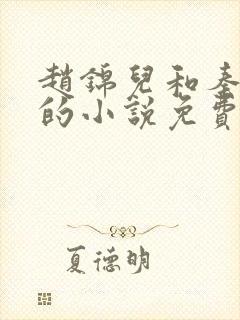 趙錦兒和秦
的小說免費
夏德明